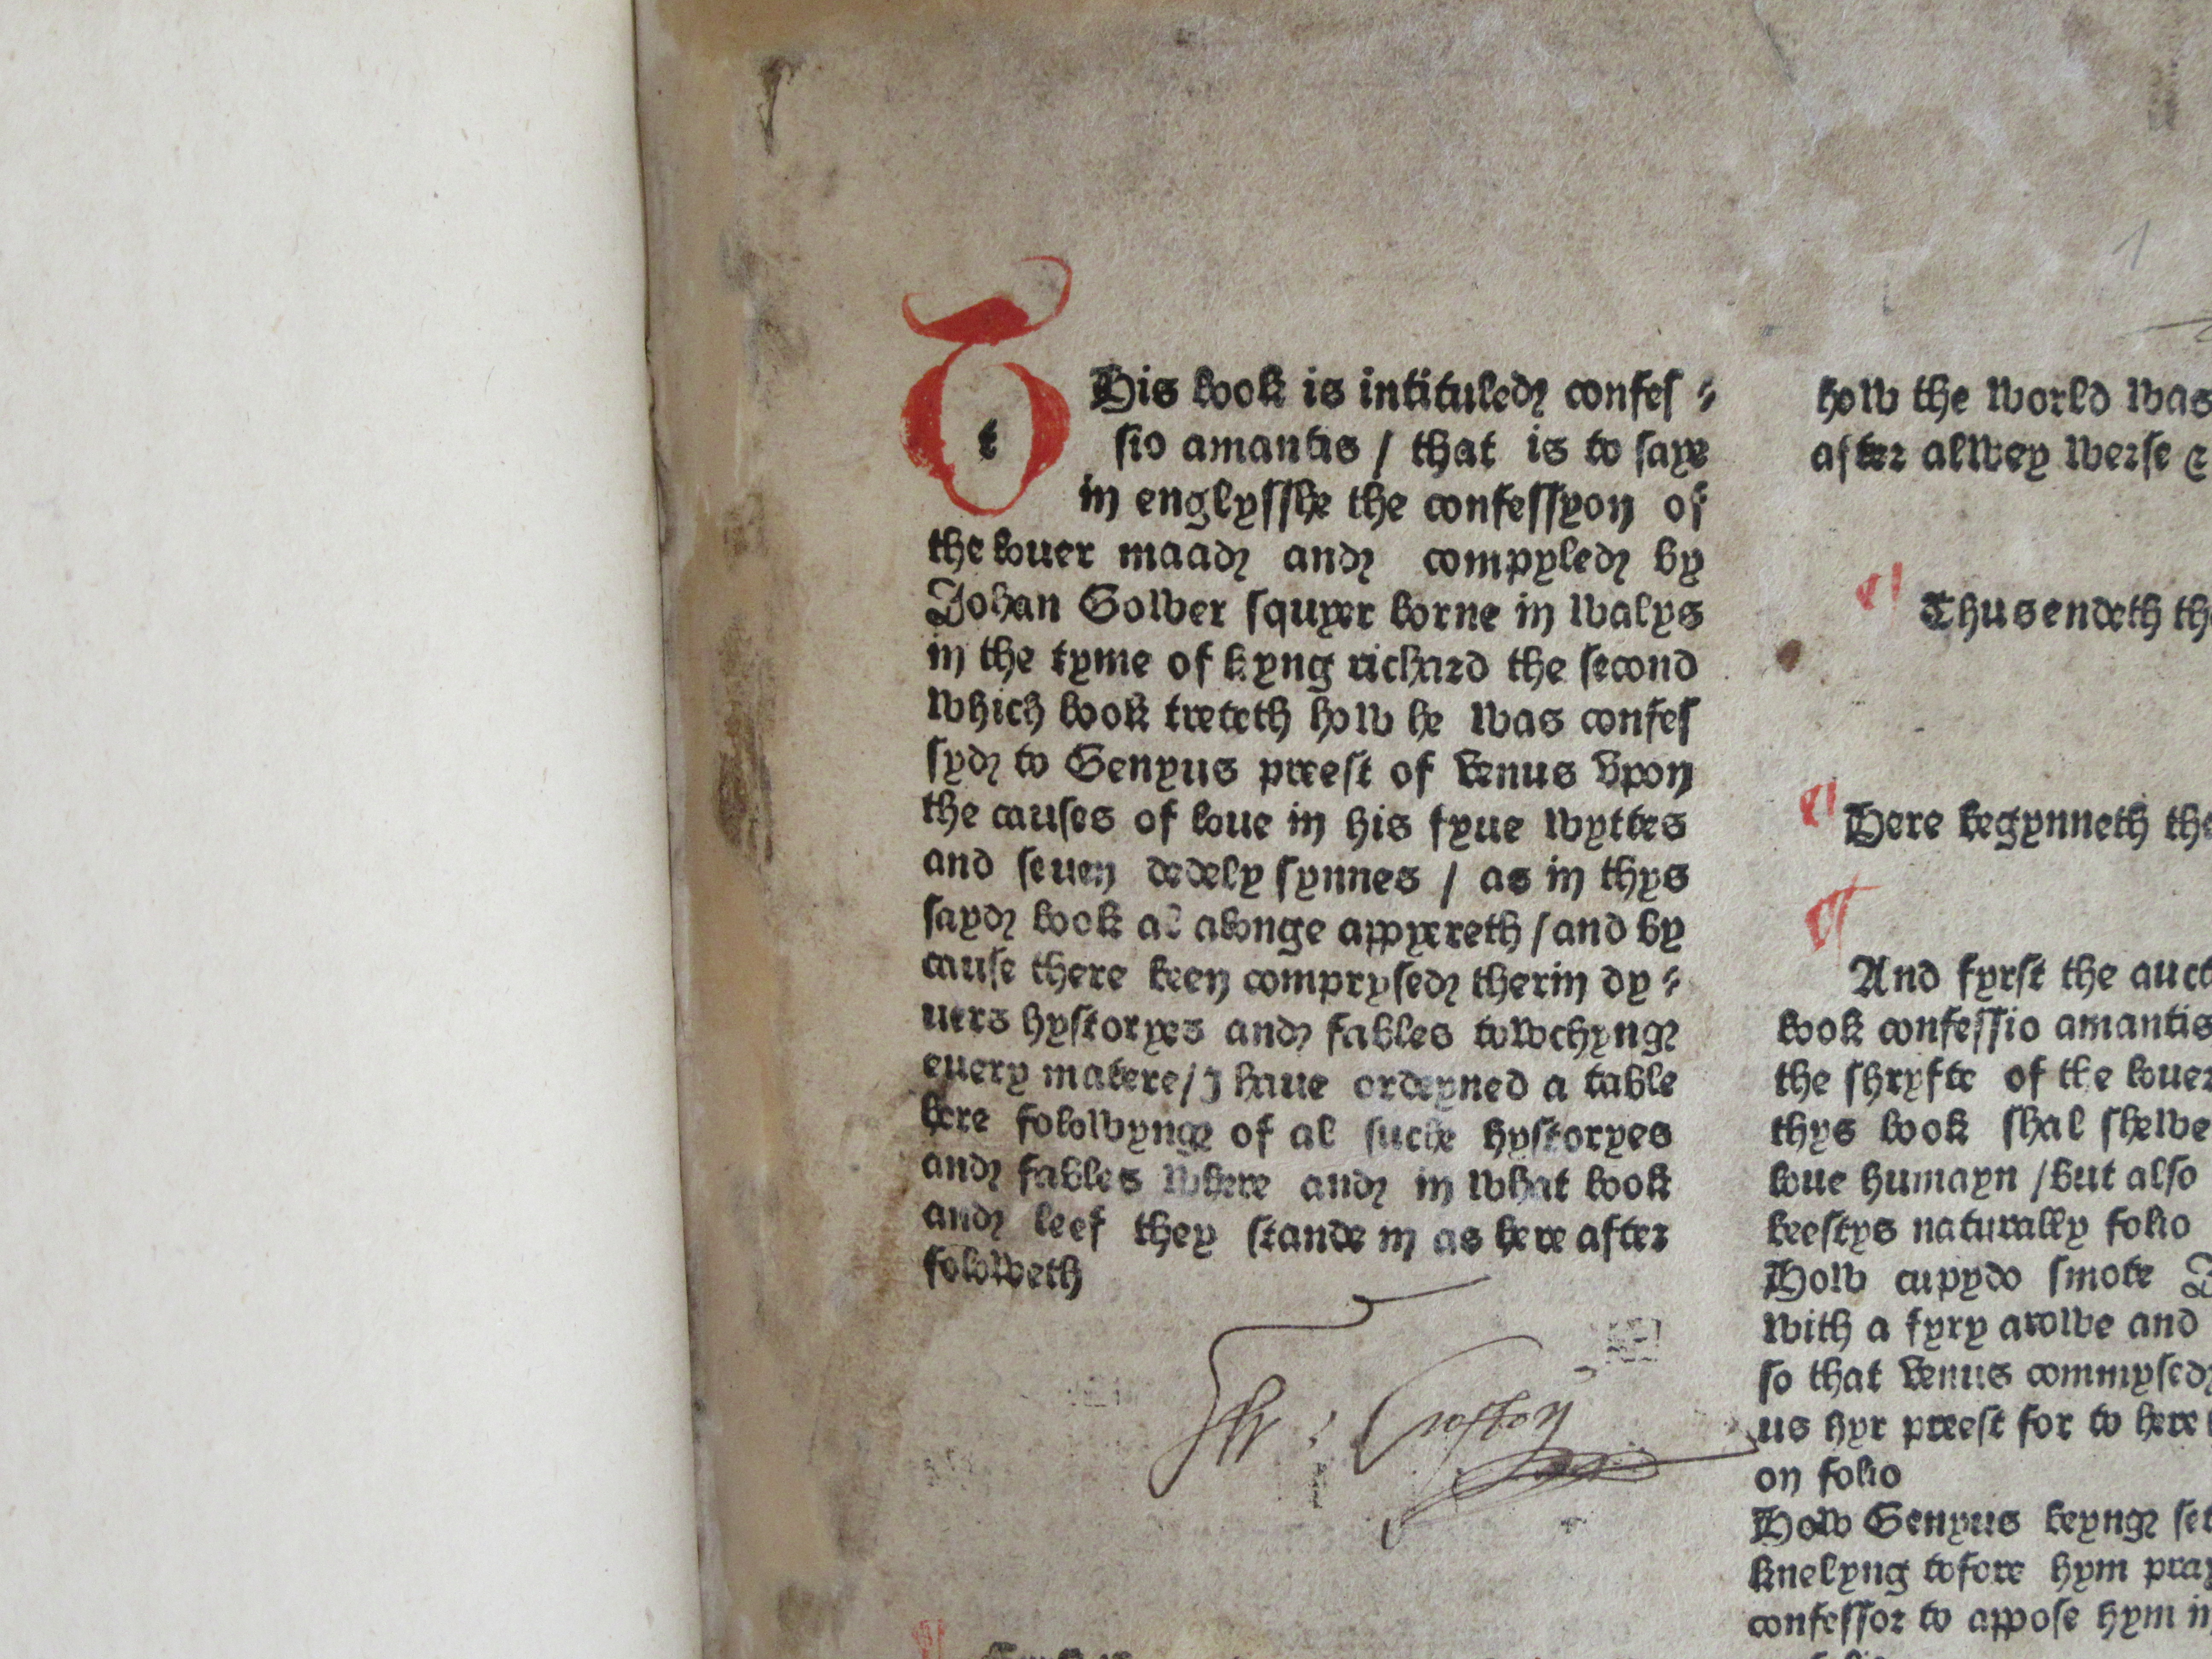 THis book is intituled confes⸗
sio amantis / that is to saye
in englysshe the confessyon of
the louer maad and compyled by
Johan Gower squyer borne in walys
in the tyme of kyng richard the second
which book treteth how he was confes
syd to Genyus preest of Venus vpon
the causes of loue in his fyue wyttes
and seuen dedely synnes / as in thys
sayd book al alonge appyereth / and by
cause there been comprysed therin dy⸗
uers hystoryes and fables towchyng
euery matere / I haue ordeyned a table
here folowyng of al suche hystoryes
and fables where and in what book
and leef they stande in as here after
foloweth
how the world was
after alwey werse &
Thus endeth the
Here begynneth the
And fyrst the auct
book confessio amantis
the shryfte of the louer
thys book shal shewe
loue humayn / but also
beestys naturally folio
How cupydo smote
with a fyry arowe and
so that Venus commysed
us hyr preest for to here
on folio
How Genyus beyng set
knelyng tofore hym pray
confessor to appose hym in